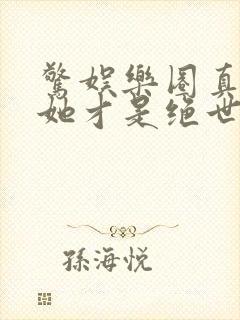 驚娛樂圈真
她才是絕世
孫海悅